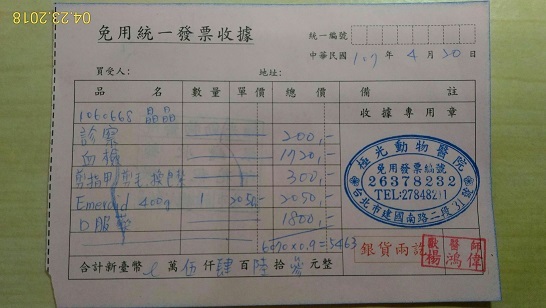 04.23.2018
免用統一發票收據
統一編號
中華民國 107 年 4 月 20 日
買受人： 地址：
品 名 數量 單價 總價 備 註
1060668 晶晶
收據專用章
診察 200,-
血檢 1720,-
剪指甲 剪毛 300,-
Emeraid 400g 1 2050,- 2050,-
口服藥 1800,-
6070×0.9=5463
極光動物醫院
免用發票編號
26378232
TEL:278482
台北市建國南路二段31號
銀貨兩訖
獸醫師
楊鴻偉
合計新臺幣 萬 伍 仟 肆 百 陸 拾 參 元整